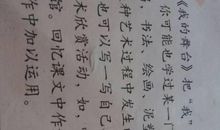 《我的舞台》把“我”
你可能也学过某一门
，书法、绘画、泥塑
种艺术过程中发生的
也可以写一写自己
术欣赏活动，如，
馆。回忆课文中作
作中加以运用。